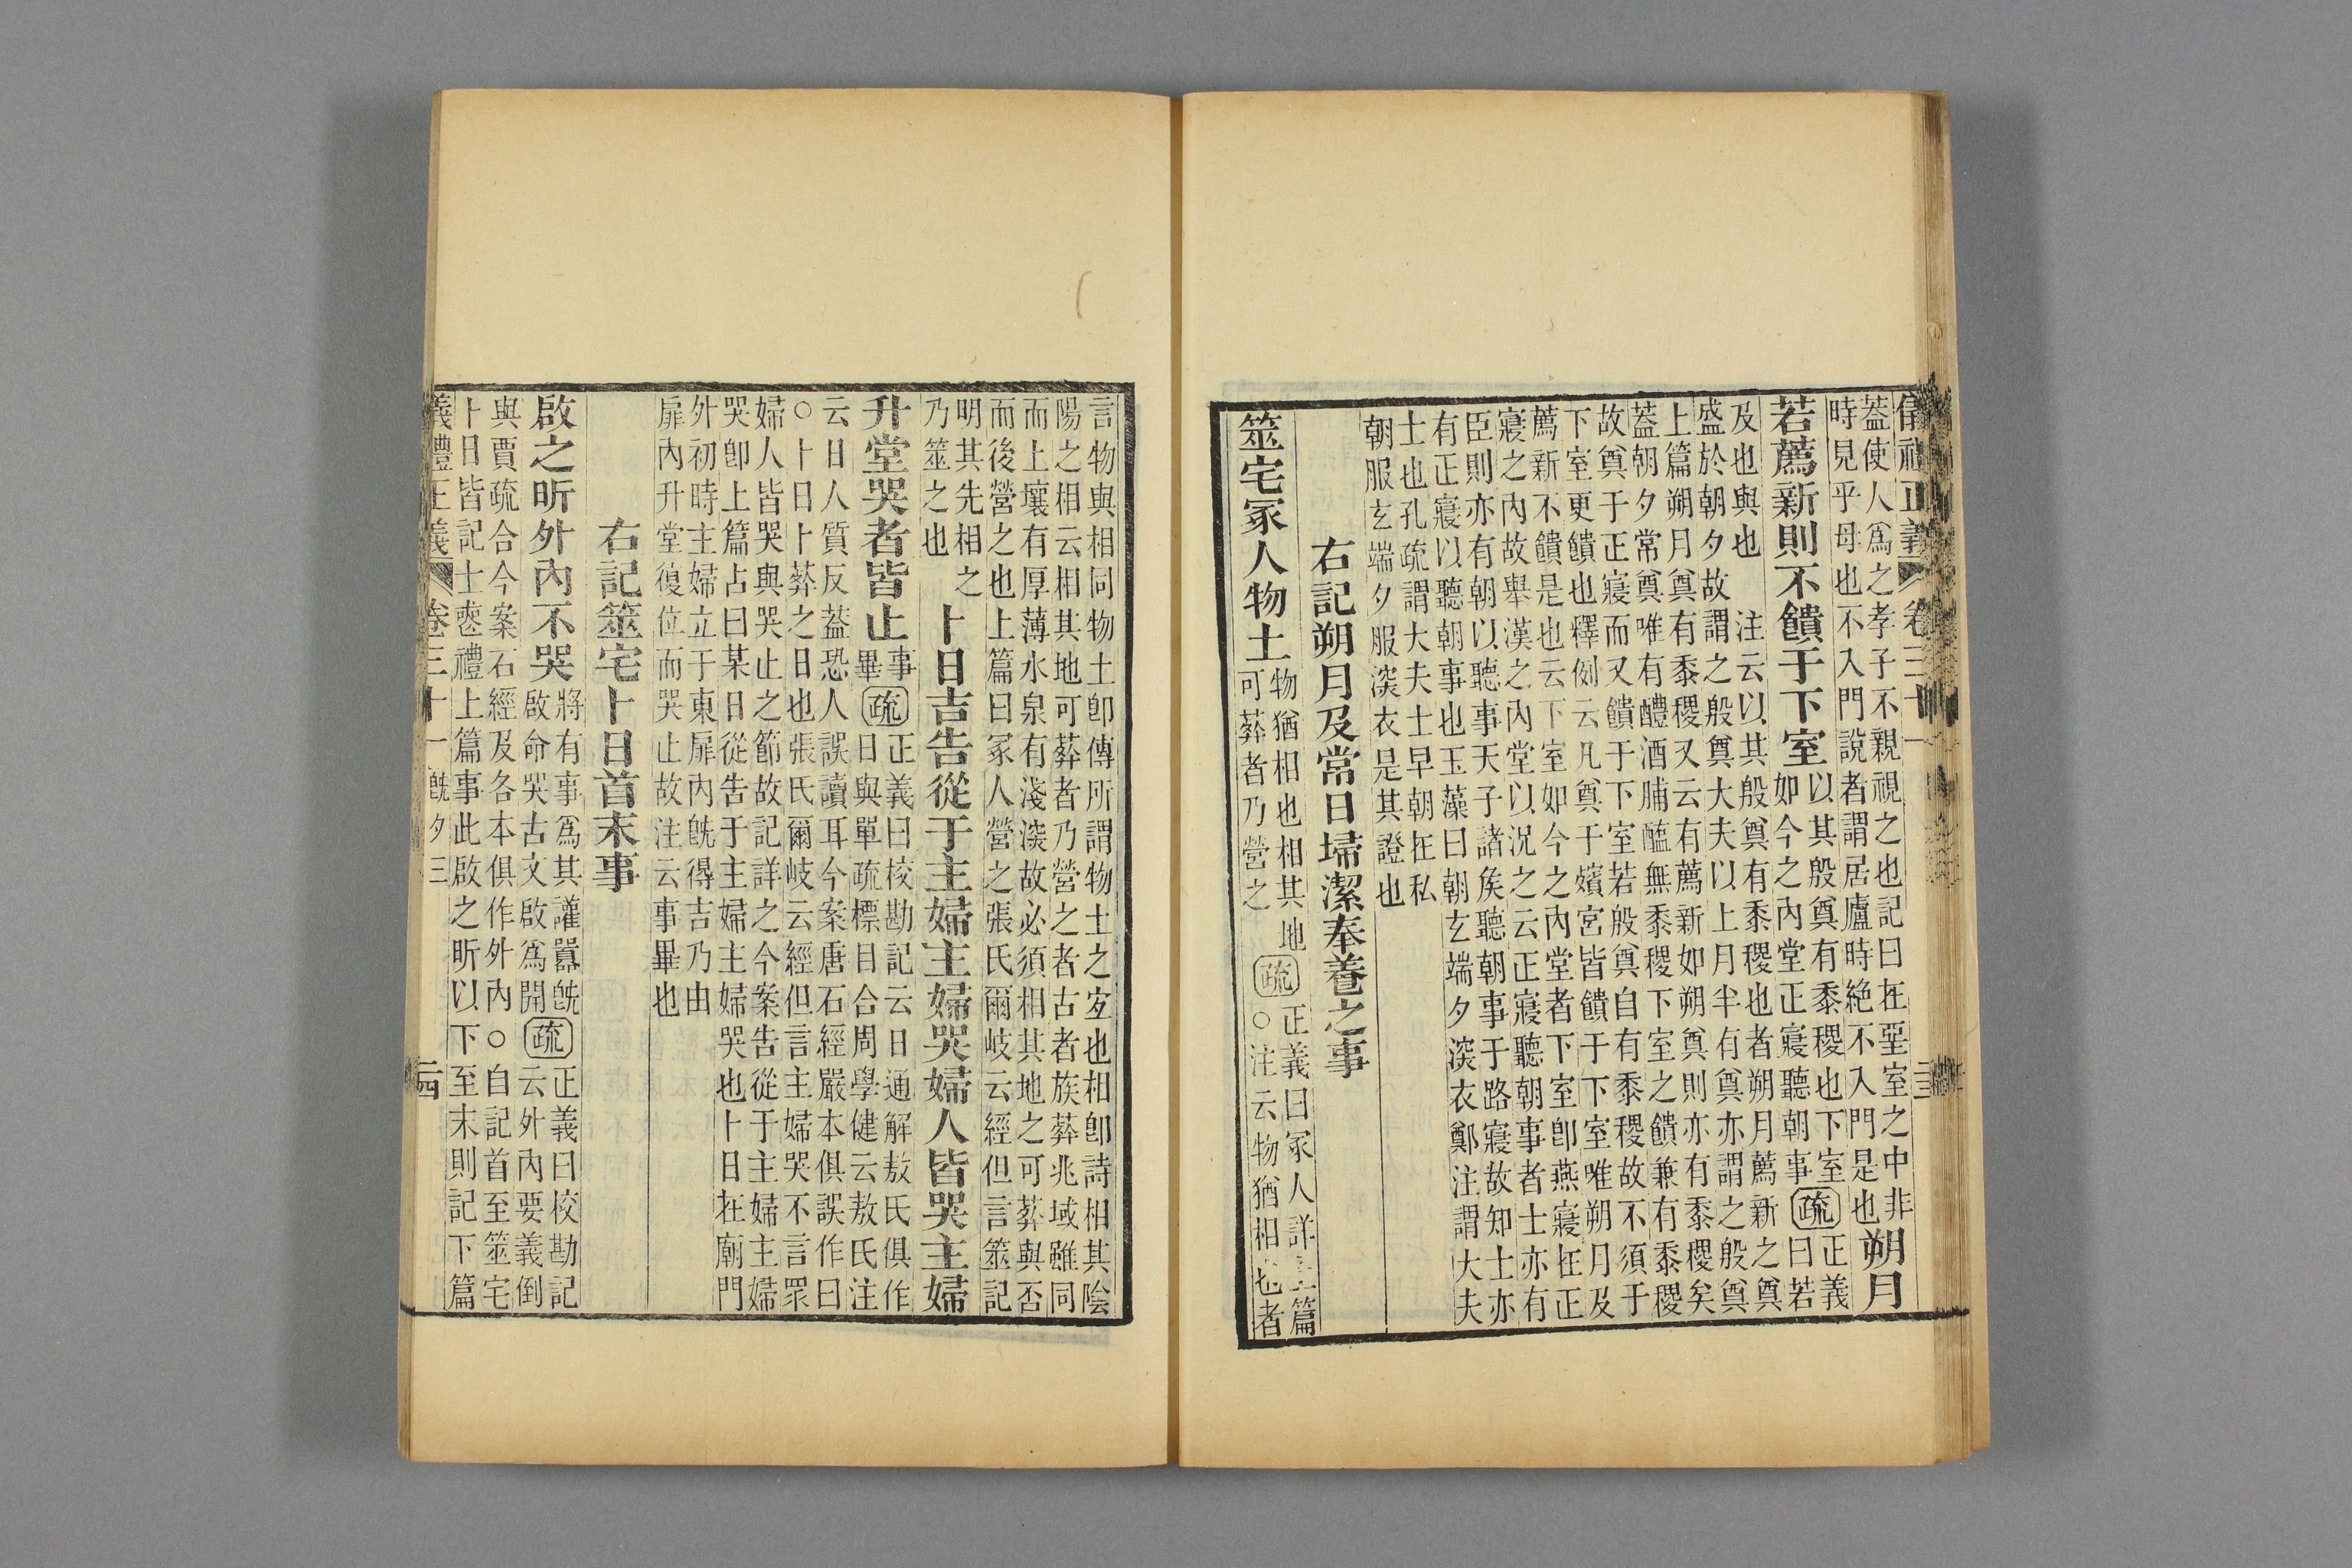 儀禮正義 卷三十一
蓋使人爲之孝子不親視之也記曰在堊室之中非
時見乎母也不入門說者謂居廬時絶不入門是也
朔月
若薦新則不饋于下室
以其殷奠有黍稷也下室
如今之內堂正寢聽朝事
疏
正義
曰若
及也與也　注云以其殷奠有黍稷也者朔月薦新之奠
盛於朝夕故謂之殷奠大夫以上月半有奠亦謂之殷奠
上篇朔月奠有黍稷又云有薦新如朔奠則亦有黍稷矣
蓋朝夕常奠唯有醴酒脯醢無黍稷下室之饋兼有黍稷
故奠于正寢而又饋于下室若殷奠自有黍稷故不須于
下室更饋也釋例云凡奠于殯宮皆饋于下室唯朔月及
薦新不饋是也云下室如今之內堂者下室卽燕寢在正
寢之內故舉漢之內堂以況之云正寢聽朝事者士亦有
臣則亦有朝以聽事天子諸矦聽朝事于路寢故知士亦
有正寢以聽朝事也玉藻曰朝玄端夕深衣鄭注謂大夫
士也孔疏謂大夫士早朝在私
朝服玄端夕服深衣是其證也
右記朔月及常日埽潔奉養之事
筮宅冢人物土
物猶相也相其地
可葬者乃營之
疏
正義曰冢人詳上篇
○注云物猶相也者
言物與相同物土卽傳所謂物土之宜也相卽詩相其陰
陽之相云相其地可葬者乃營之者古者族葬兆域雖同
而上壤有厚薄水泉有淺深故必須相其地之可葬與否
而後營之也上篇曰冢人營之張氏爾岐云經但言筮記
明其先相之
乃筮之也
卜日吉告從于主婦主婦哭婦人皆哭主婦
升堂哭者皆止
事
畢
疏
正義曰校勘記云日通解敖氏俱作
日與單疏標目合周學健云敖氏注
云日人質反蓋恐人誤讀耳今案唐石經嚴本俱誤作曰
○卜日卜葬之日也張氏爾岐云經但言主婦哭不言眾
婦人皆哭與哭止之節故記詳之今案告從于主婦主婦
哭卽上篇占曰某日從告于主婦主婦哭也卜日在廟門
外初時主婦立于東扉內旣得吉乃由
扉內升堂復位而哭止故注云事畢也
右記筮宅卜日首末事
啟之昕外內不哭
將有事爲其讙囂旣
啟命哭古文啟爲開
疏
正義曰校勘記
云外內要義倒
與賈疏合今案石經及各本俱作外內○自記首至筮宅
卜日皆記士喪禮上篇事此啟之昕以下至末則記下篇
義禮正義 卷三十一 旣夕三